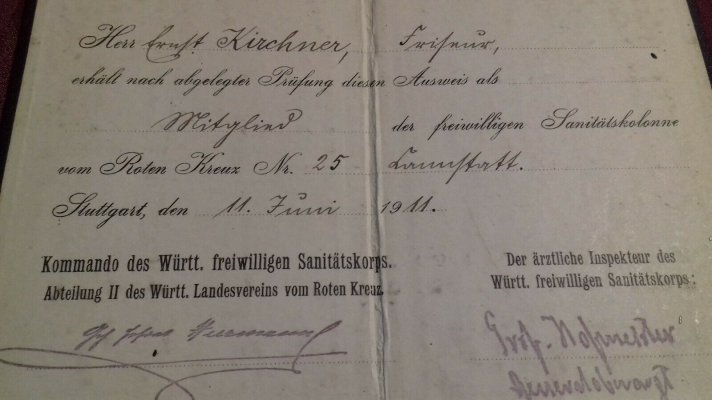 Herr Ernst Kirchner, Friseur,
erhält nach abgelegter Prüfung diesen Ausweis als
Mitglied der freiwilligen Sanitätskolonne
vom Roten Kreuz Nr. 25 Cannstatt.
Stuttgart, den 11. Juni 1911.
Kommando des Württ. freiwilligen Sanitätskorps.
Abteilung II des Württ. Landesvereins vom Roten Kreuz
Der ärztliche Inspekteur des
Württ. freiwilligen Sanitätskorps:
Prof. Hofmeister